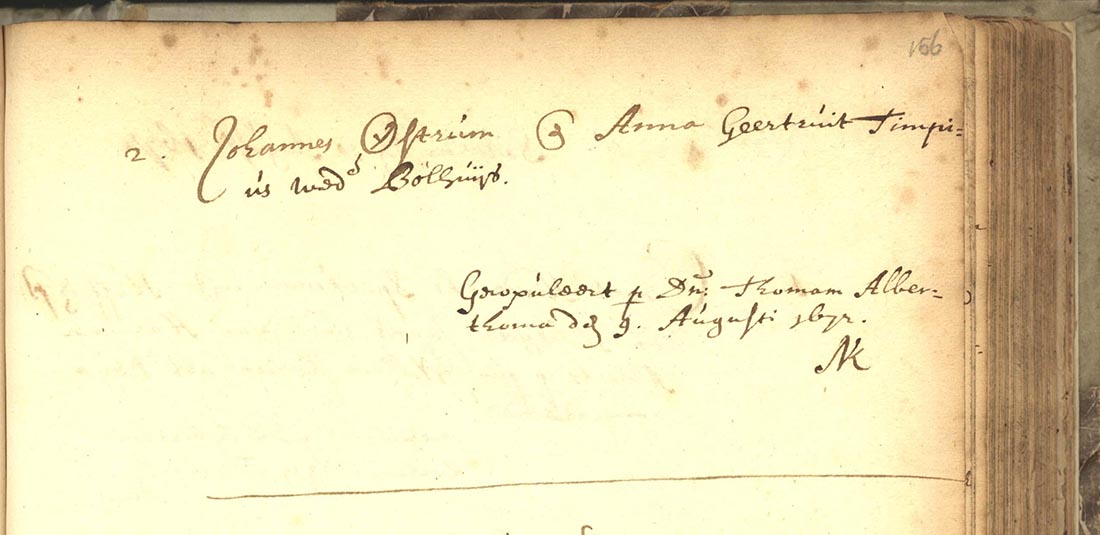 156
2. Johannes Ostrum & Anna Geertruit Timpi=
us wede Bolhuijs.
Gecopuleert p Dn: Thomam Alber=
thoma den 9. Augusti 1672.
NK